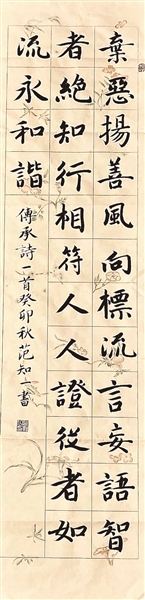 棄惡揚善風向標流言妄語智
者絕知行相符人人證從者如
流永和諧
傳承詩一首癸卯秋范知一書